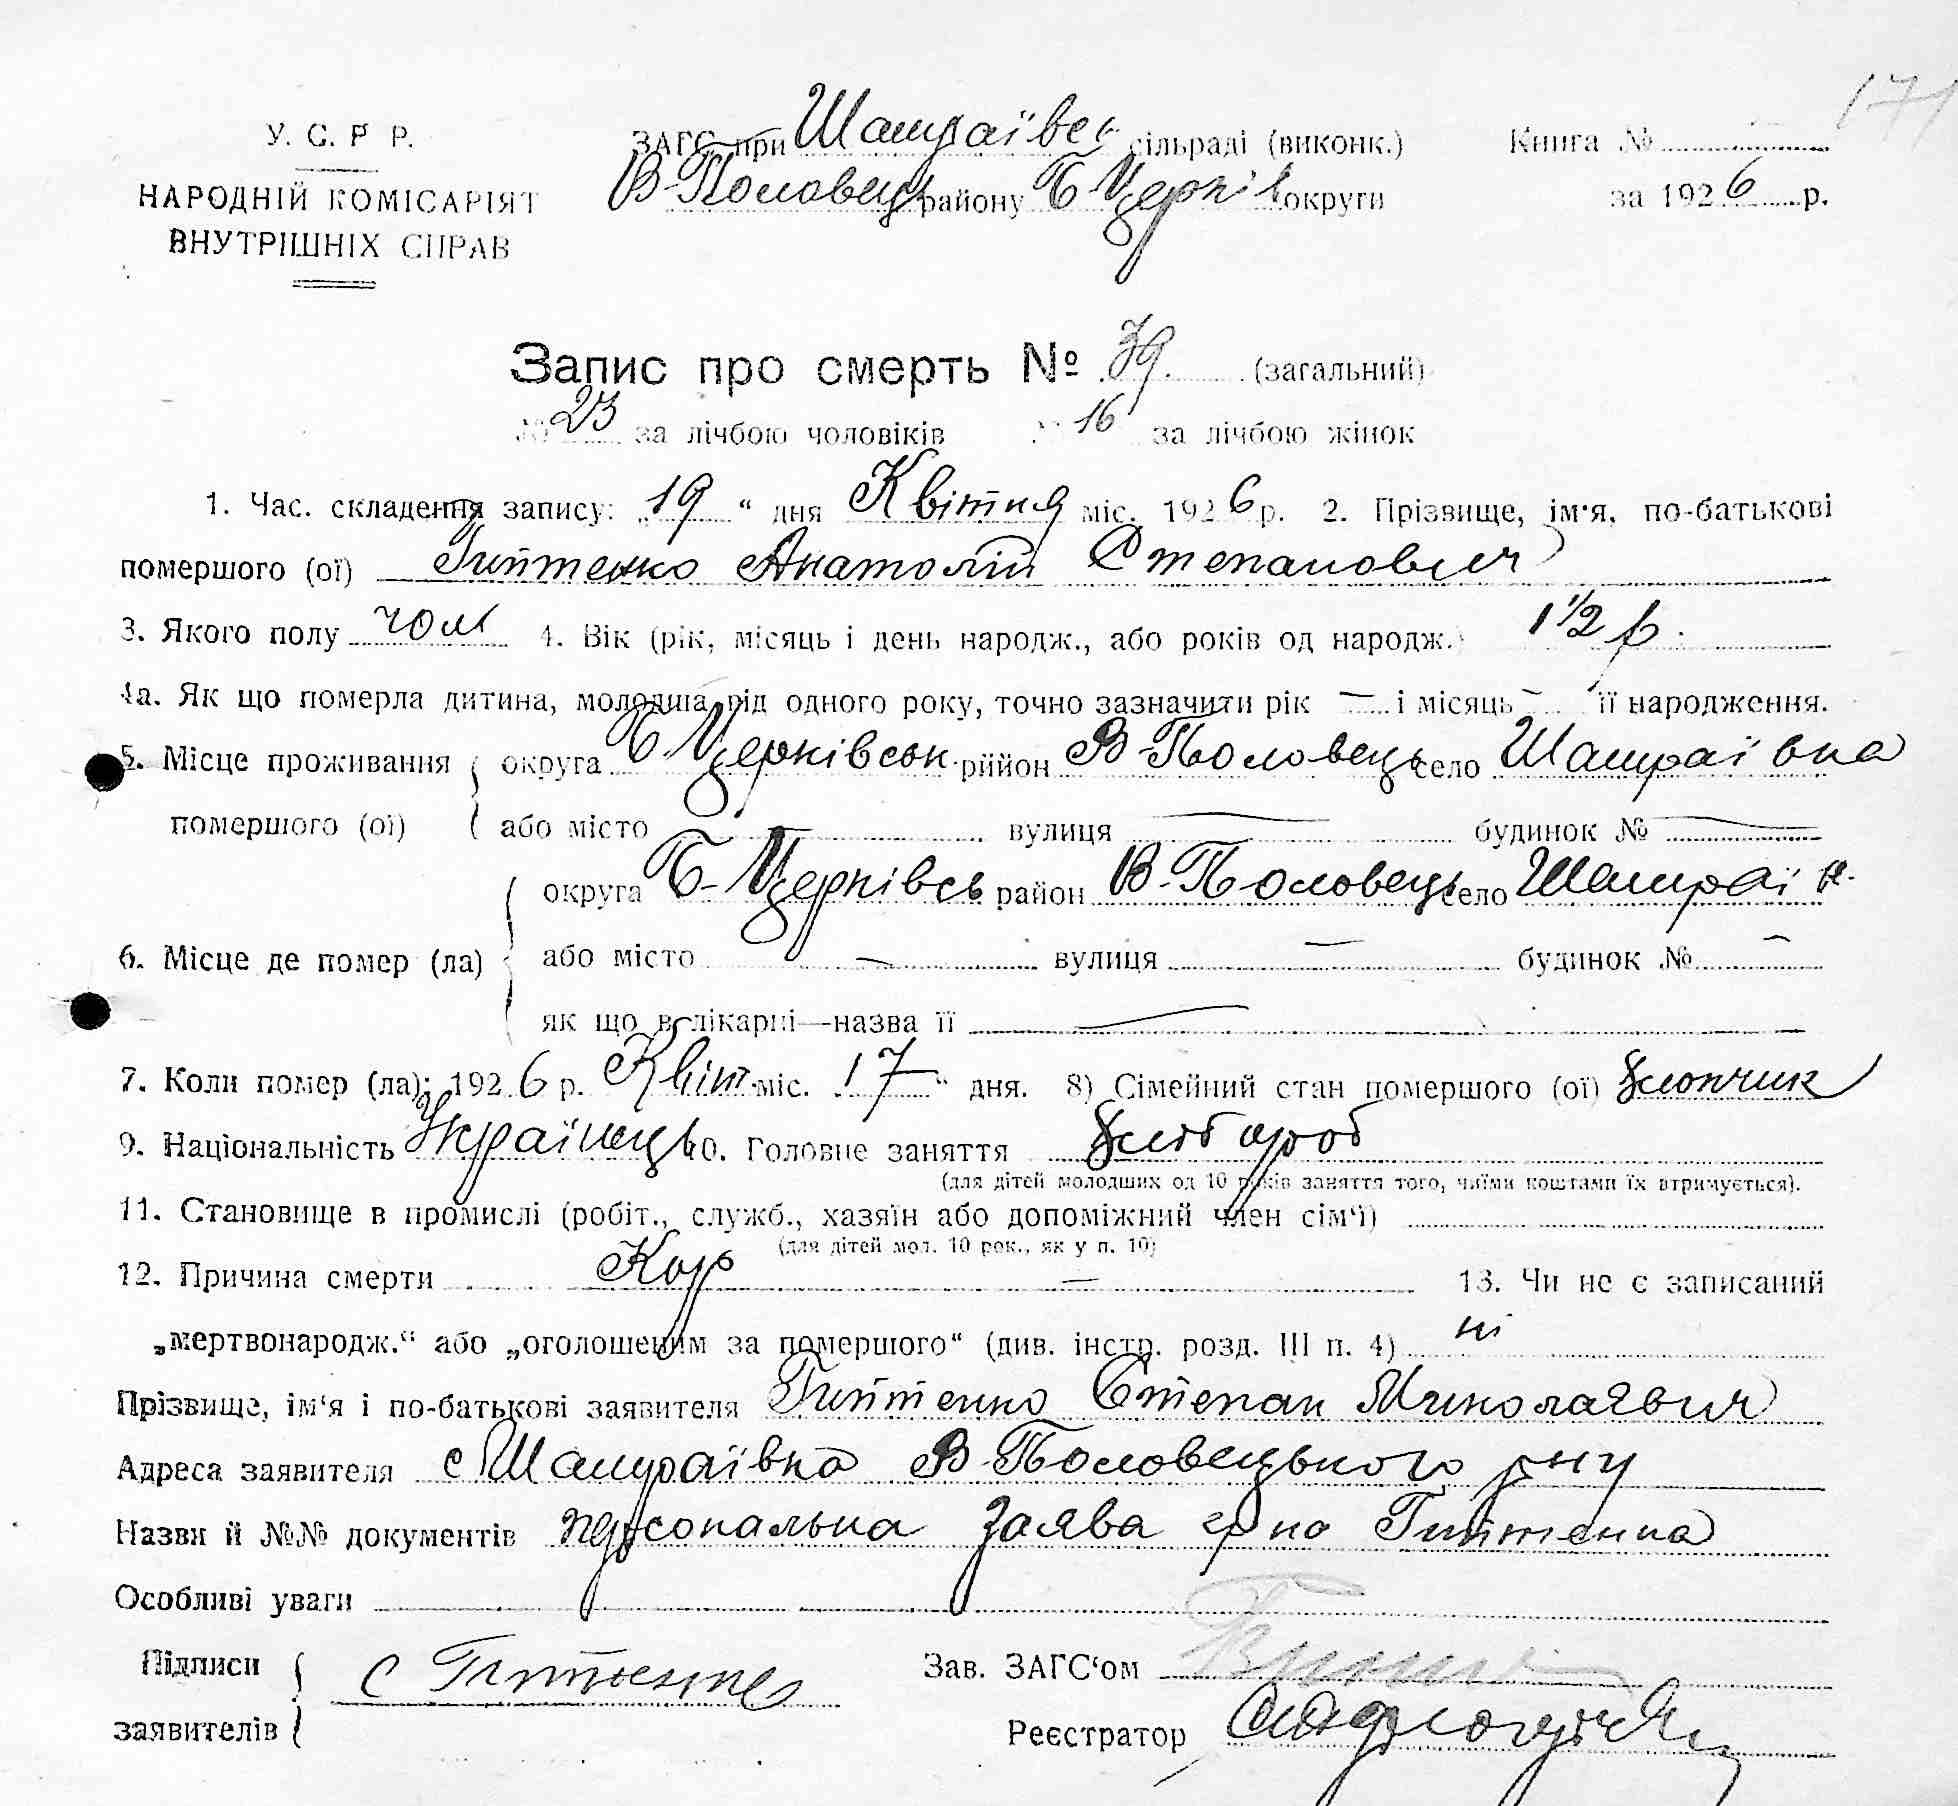 171
У. С. Р Р.
ЗАГС при Шамраївськ сільраді (виконк.) Книга №
НАРОДНІЙ КОМІСАРІЯТ В-Половець району Б Церків округи за 1926 р.
ВНУТРІШНІХ СПРАВ
Запис про смерть № 39 (загальний)
№ 23 за лічбою чоловіків № 16 за лічбою жінок
1. Час. складення запису: „19“ дня Квітня міс. 1926 р. 2. Прізвище, ім'я, по-батькові
помершого (ої) Гиптенко Анатолій Степанович
3. Якого полу чол 4. Вік (рік, місяць і день народж., або років од народж.) 1 1/2 р.
4а. Як що померла дитина, молодша від одного року, точно зазначити рік — і місяць — її народження.
5. Місце проживання округа Б Церківськ район В-Половець село Шамраївка
помершого (ої) або місто — вулиця — будинок № —
округа Б-Церківсь район В-Половець село Шамраї к.
6. Місце де помер (ла) або місто — вулиця — будинок № —
як що в лікарні—назва її —
7. Коли помер (ла): 1926 р. Квіт міс. „17“ дня. 8) Сімейний стан помершого (ої) хлопчик
9. Національність Українець 10. Головне заняття хлібороб
(для дітей молодших од 10 років заняття того, чиїми коштами їх втримується).
11. Становище в промислі (робіт., служб., хазяїн або допоміжний член сім'ї)
(для дітей мол. 10 рок., як у п. 10)
12. Причина смерти Кор — 13. Чи не є записаний
„мертвонародж.“ або „оголошеним за помершого“ (див. інстр. розд. III п. 4) ні
Прізвище, ім'я і по-батькові заявителя Гиптенко Степан Миколаєвич
Адреса заявителя с Шамраївка В-Половецького р-ну
Назви й №№ документів персональна заява гр на Гиптенка
Особливі уваги
Підписи С Гиптенко Зав. ЗАГС'ом
заявителів Реєстратор